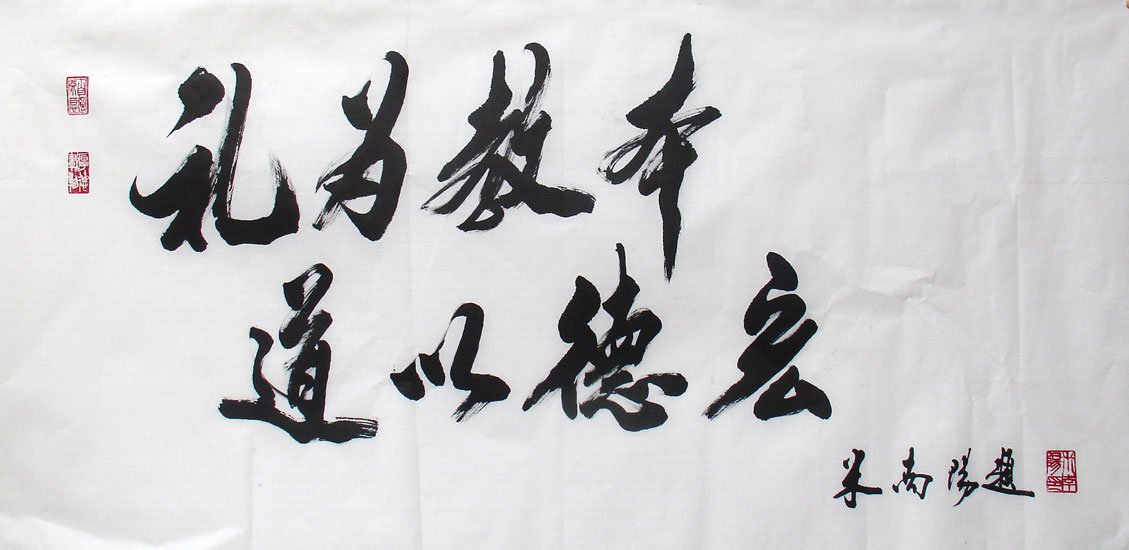 礼为教本
道以德宏
米南阳题